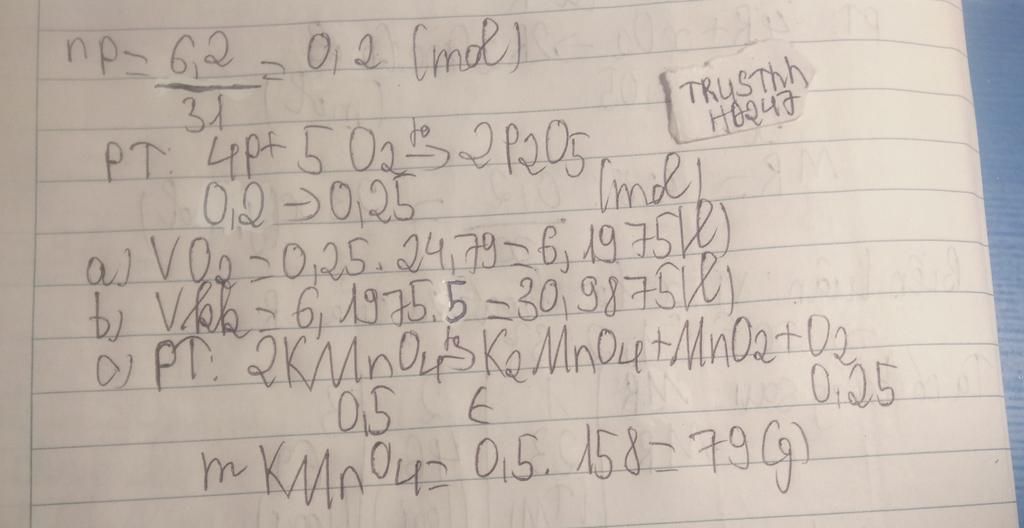 np = 6,2 / 31 = 0,2 (mol)
TRUSThh
HD247
PT: 4P + 5O2 tº→ 2P2O5
0,2 → 0,25 (mol)
a) VO2 = 0,25. 24,79 = 6,1975 (l)
b) Vkk = 6,1975.5 = 30,9875 (l)
c) PT: 2KMnO4 tº→ K2MnO4 + MnO2 + O2
0,5 ← 0,25
mKMnO4 = 0,5. 158 = 79 (g)